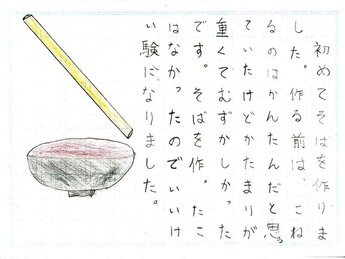 初めてそばを作りま
した。作る前は、こね
るのはかんたんだと思っ
ていたけどかたまりが
重くてむずかしかった
です。そばを作ったこ
はなかったのでいいけ
い験になりました。